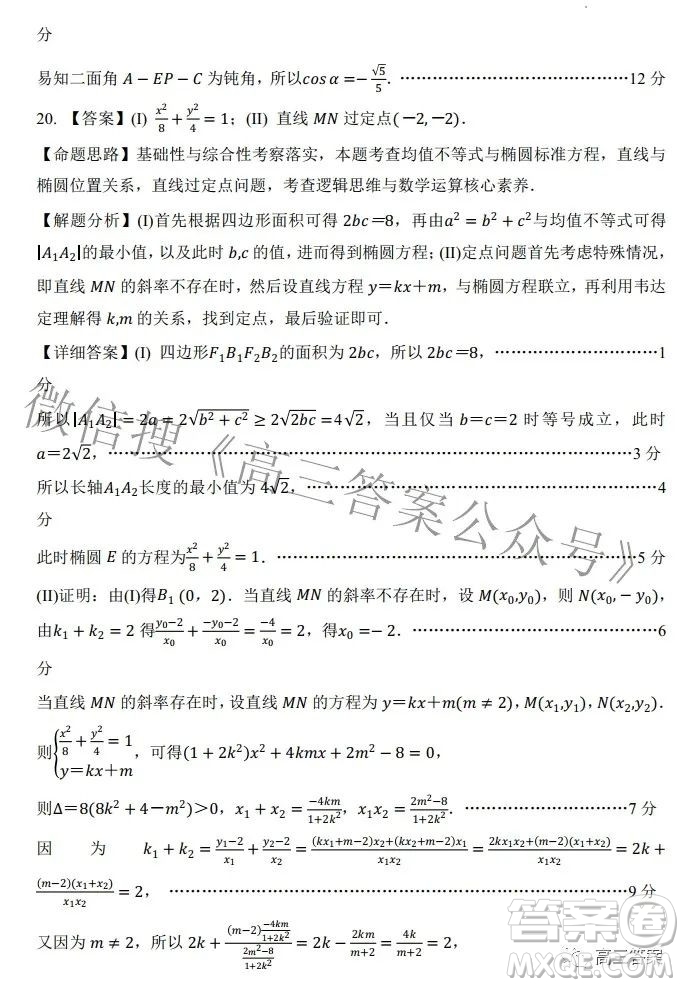 分
易知二面角 A－EP－C 为钝角，所以cosα＝−√5/5．……………………………………12 分
20. 【答案】(I) x²/8＋y²/4＝1；(II) 直线 MN 过定点(－2,－2)．
【命题思路】基础性与综合性考察落实，本题考查均值不等式与椭圆标准方程，直线与
椭圆位置关系，直线过定点问题，考查逻辑思维与数学运算核心素养．
【解题分析】(I)首先根据四边形面积可得 2bc＝8，再由a²＝b²＋c²与均值不等式可得
|A₁A₂|的最小值，以及此时 b,c 的值，进而得到椭圆方程；(II)定点问题首先考虑特殊情况，
即直线 MN 的斜率不存在时，然后设直线方程 y＝kx＋m，与椭圆方程联立，再利用韦达
定理解得 k,m 的关系，找到定点，最后验证即可．
【详细答案】(I) 四边形F₁B₁F₂B₂的面积为 2bc，所以 2bc＝8，……………………………1
分
所以|A₁A₂|＝2a＝2√(b²＋c²) ≥ 2√(2bc)＝4√2，当且仅当 b＝c＝2 时等号成立，此时
a＝2√2，……………………………………………………………………3 分
所以长轴A₁A₂长度的最小值为 4√2，……………………………………………4
分
此时椭圆 E 的方程为x²/8＋y²/4＝1．……………………………………………5 分
(II)证明：由(I)得B₁ (0，2)．当直线 MN 的斜率不存在时，设 M(x₀,y₀)，则 N(x₀,－y₀)，
由k₁＋k₂＝2 得(y₀−2)/x₀＋(−y₀−2)/x₀＝−4/x₀＝2，得x₀＝−2．……………………………6
分
当直线 MN 的斜率存在时，设直线 MN 的方程为 y＝kx＋m(m ≠ 2)，M(x₁,y₁)，N(x₂,y₂)．
则{x²/8＋y²/4＝1
y＝kx＋m，可得(1＋2k²)x²＋4kmx＋2m²－8＝0，
则Δ＝8(8k²＋4－m²)＞0，x₁＋x₂＝−4km/(1+2k²)，x₁x₂＝(2m²−8)/(1+2k²)．……………………7 分
因为 k₁＋k₂＝(y₁−2)/x₁＋(y₂−2)/x₂＝((kx₁+m−2)x₂+(kx₂+m−2)x₁)/(x₁x₂)＝(2kx₁x₂+(m−2)(x₁+x₂))/(x₁x₂)＝2k＋
(m−2)(x₁+x₂)/(x₁x₂)＝2，……………………………………………………………9 分
又因为 m ≠ 2，所以 2k＋((m−2)(−4km/(1+2k²)))/((2m²−8)/(1+2k²))＝2k－2km/(m+2)＝4k/(m+2)＝2，
微信搜《高三答案公众号》
高三答案
答案卷
MXQE.COM